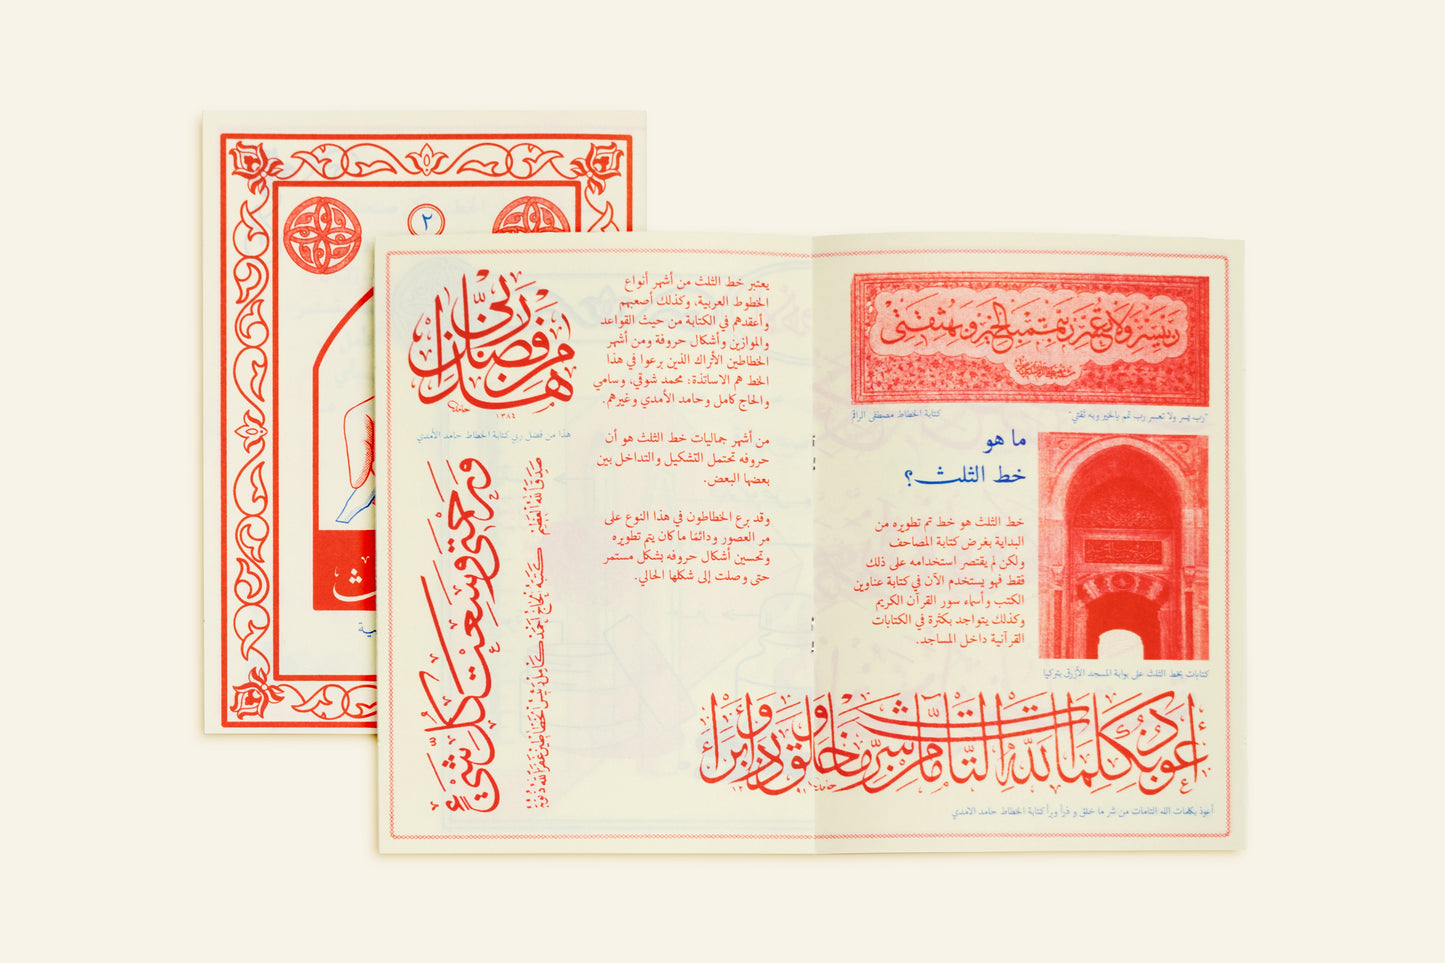 ٢
رب يسر ولا تعسر رب تمم بالخير وبه ثقتي
"رب يسر ولا تعسر رب تمم بالخير وبه ثقتي"
كتابة الخطاط مصطفى الراقم
ما هو
خط الثلث؟
خط الثلث هو خط تم تطويره من
البداية بغرض كتابة المصاحف
ولكن لم يقتصر استخدامه على ذلك
فقط فهو يستخدم الآن في كتابة عناوين
الكتب وأسماء سور القرآن الكريم
وكذلك يتواجد بكثرة في الكتابات
القرآنية داخل المساجد.
كتابات بخط الثلث على بوابة المسجد الأزرق بتركيا
أعوذ بكلمات الله التامات من شر ما خلق وذرأ وبرأ
أعوذ بكلمات الله التامات من شر ما خلق و ذرأ وبرأ كتابة الخطاط حامد الامدي
يعتبر خط الثلث من أشهر أنواع
الخطوط العربية، وكذلك أصعبهم
وأعقدهم في الكتابة من حيث القواعد
والموازين وأشكال حروفة ومن أشهر
الخطاطين الأتراك الذين برعوا في هذا
الخط هم الاساتذة: محمد شوقي، وسامي
والحاج كامل وحامد الأمدي وغيرهم.
من أشهر جماليات خط الثلث هو أن
حروفه تحتمل التشكيل والتداخل بين
بعضها البعض.
وقد برع الخطاطون في هذا النوع على
مر العصور ودائمًا ما كان يتم تطويره
وتحسين أشكال حروفه بشكل مستمر
حتى وصلت إلى شكلها الحالي.
هذا من فضل ربي
حامد
١٣٨٤
هذا من فضل ربي كتابة الخطاط حامد الأمدي
ورحمتي وسعت كل شيء
صدق الله العظيم